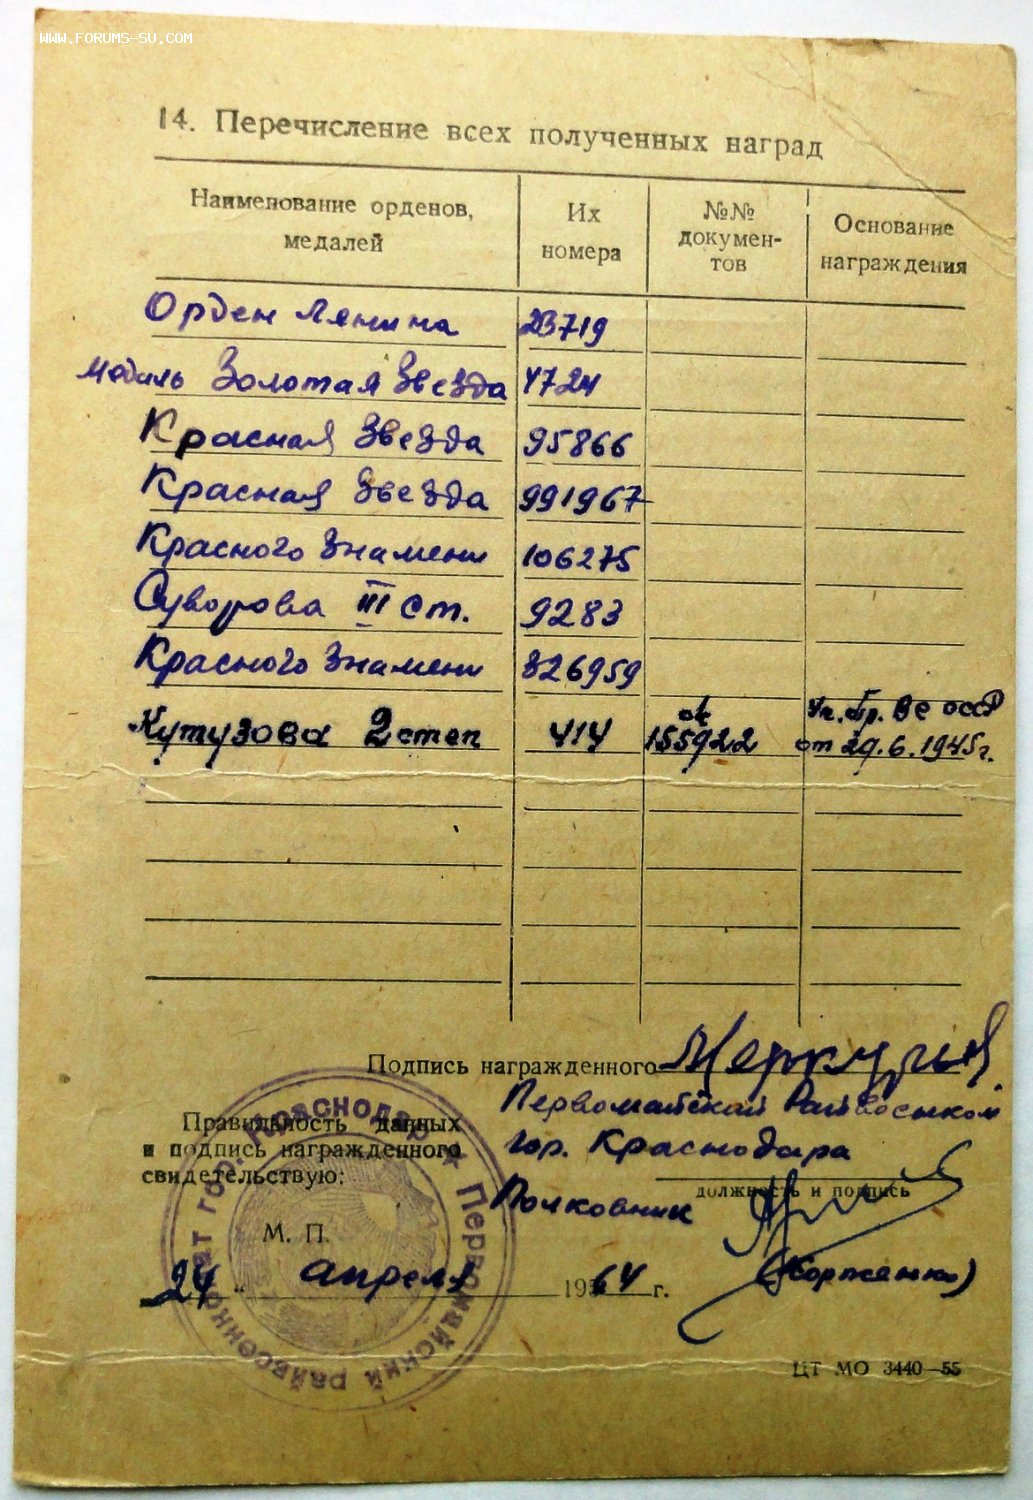 www.forums-su.com
14. Перечисление всех полученных наград
Наименование орденов, медалей
Их номера
№№ докумен-тов
Основание награждения
Орден Ленина 23719
Медаль Золотая Звезда 4724
Красная Звезда 95866
Красная Звезда 991967
Красного Знамени 106275
Суворова III ст. 9283
Красного Знамени 326959
Ук. Пр. Вс СССР
Кутузова 2 степ 414 155922 от 29.6.1945г.
Подпись награжденного
Первомайский Райвоенком
Правильность данных
и подпись награжденного
гор. Краснодара
свидетельствую:
должность и подпись
Полковник
М. П.
24 " апреля 1964 г.
ЦТ МО 3440—55
гор. Краснодар ★ Первомайский райвоенкомат